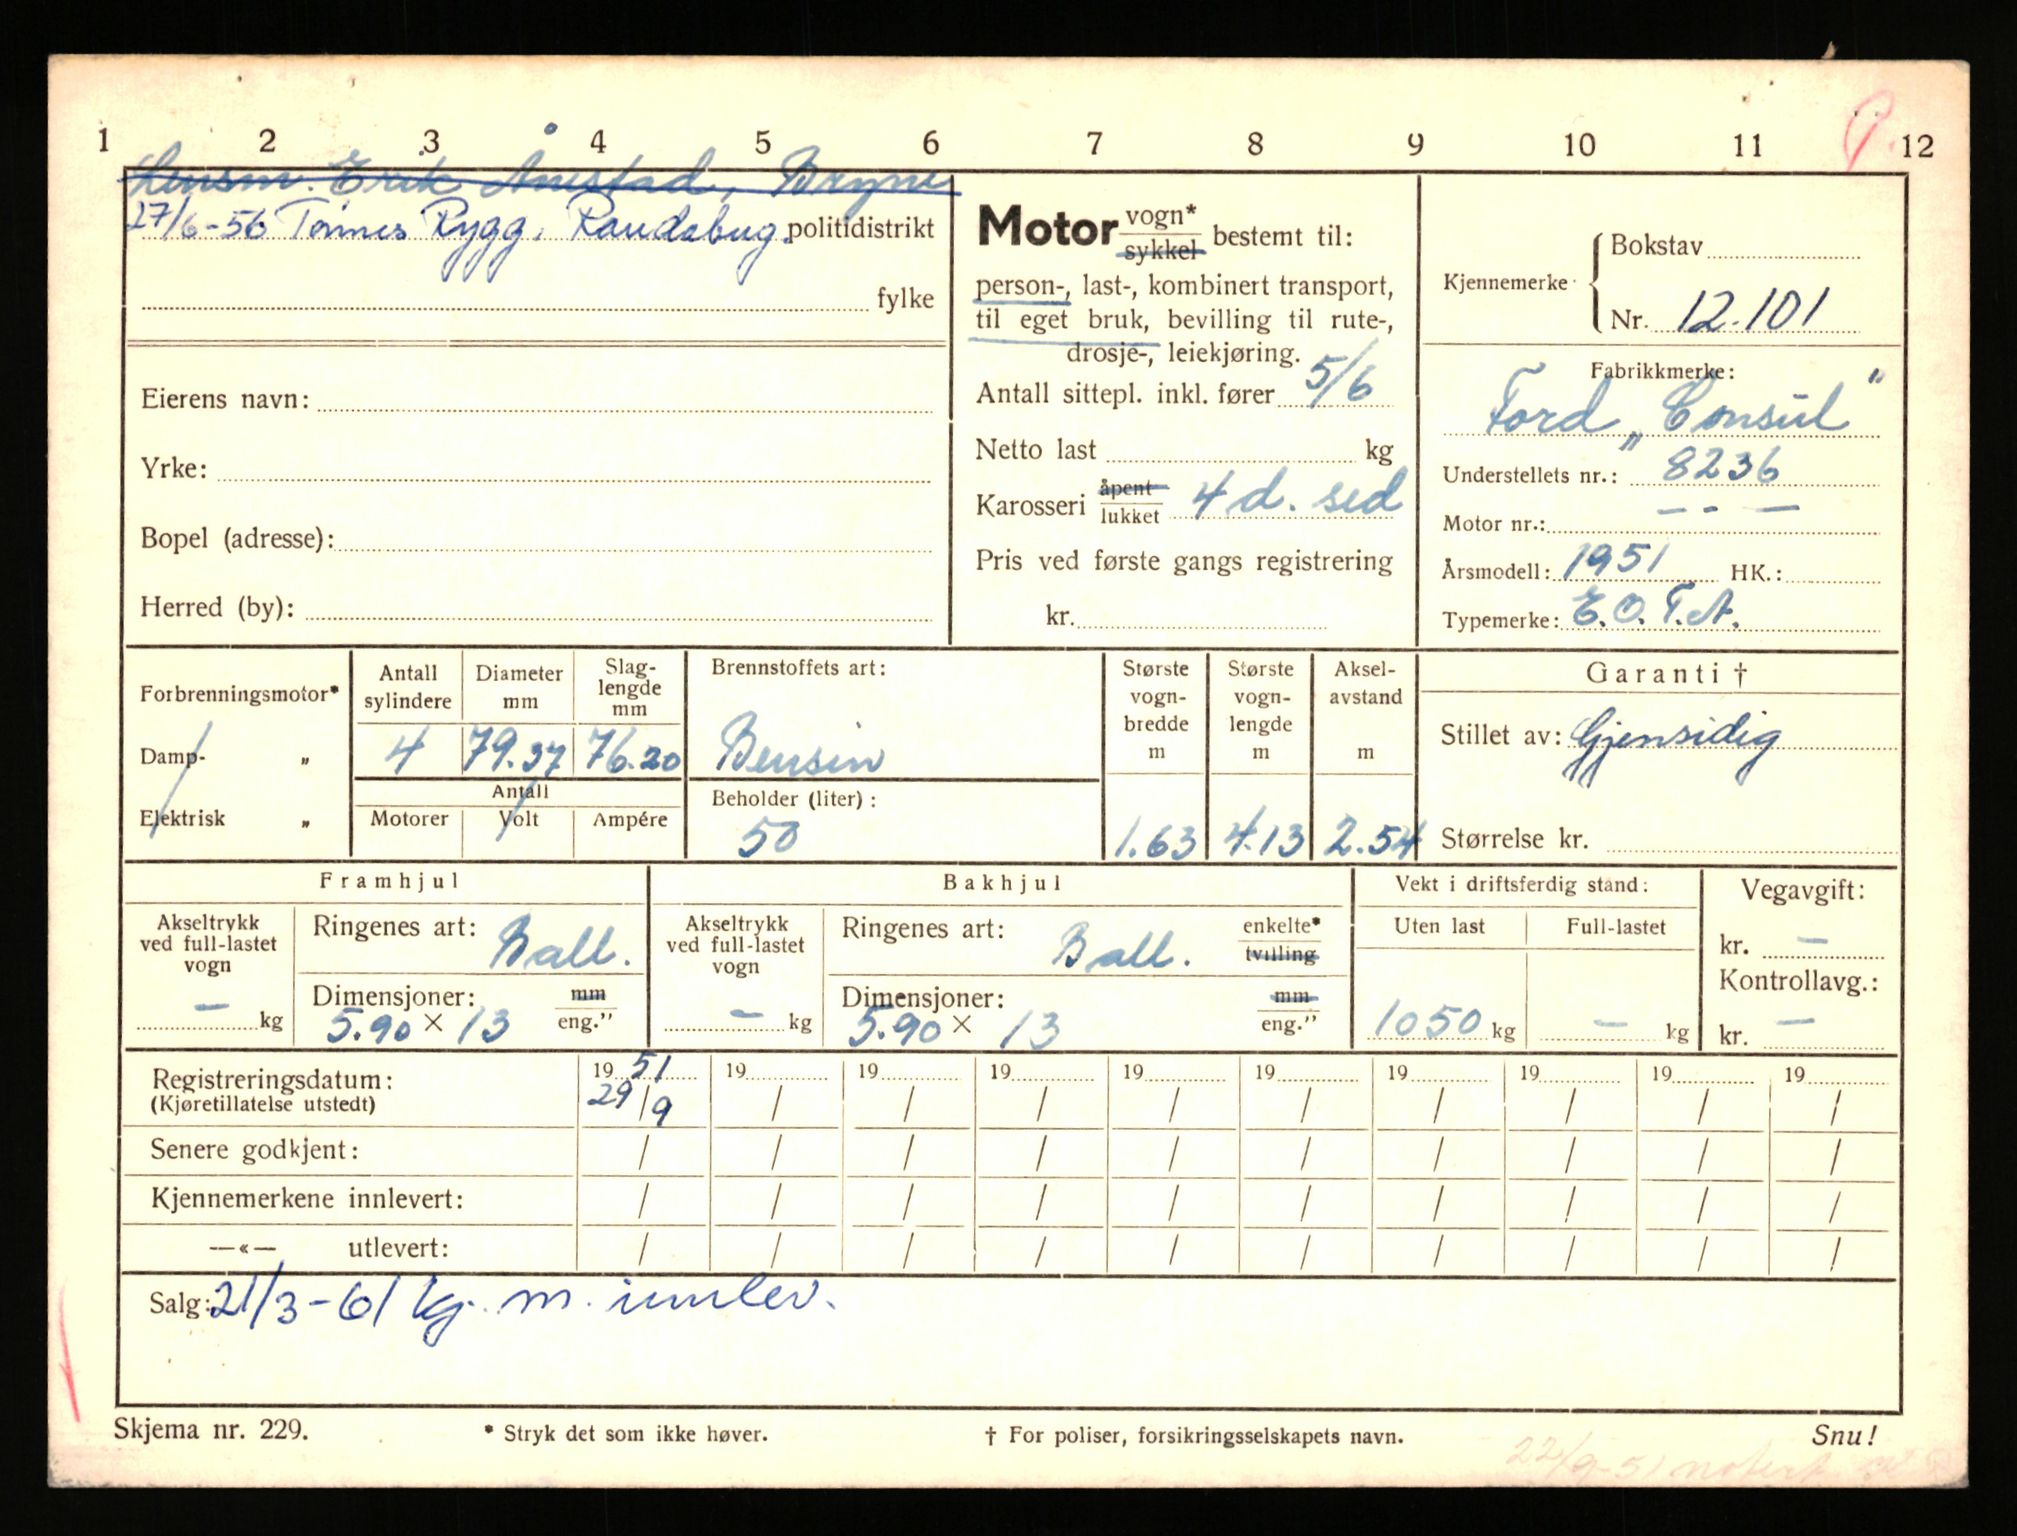 1 2 3 4 5 6 7 8 9 10 11 12
Lensm. Erik Ånestad, Bryne
27/6-56 Tønnes Rygg, Randaberg. politidistrikt
fylke
Eierens navn:
Yrke:
Bopel (adresse):
Herred (by):
Motor vogn* sykkel bestemt til:
person-, last-, kombinert transport,
til eget bruk, bevilling til rute-,
drosje-, leiekjøring.
Antall sittepl. inkl. fører 5/6
Netto last kg
Karosseri åpent lukket 4 d. sed
Pris ved første gangs registrering
kr.
Kjennemerke
Bokstav
Nr. 12.101
Fabrikkmerke:
Ford „Consul"
Understellets nr.: 8236
Motor nr.: - - -
Årsmodell: 1951 HK.:
Typemerke: E.O.T.A.
Forbrenningsmotor*
Damp- „
Elektrisk „
Antall sylindere
4
Diameter mm
79.37
Slag-lengde mm
76.20
Antall
Motorer Volt Ampére
Brennstoffets art:
Bensin
Beholder (liter):
50
Største vogn-bredde m
1.63
Største vogn-lengde m
4.13
Aksel-avstand m
2.54
Garanti †
Stillet av: Gjensidig
Størrelse kr.
Framhjul
Akseltrykk ved full-lastet vogn
- kg
Ringenes art: Ball.
Dimensjoner: mm
5.90 × 13 eng."
Bakhjul
Akseltrykk ved full-lastet vogn
- kg
Ringenes art: Ball. enkelte* tvilling
Dimensjoner: mm
5.90 × 13 eng."
Vekt i driftsferdig stand:
Uten last Full-lastet
1050 kg - kg
Vegavgift:
kr. -
Kontrollavg.:
kr. -
Registreringsdatum: 19 51 19 19 19 19 19 19 19 19 19
(Kjøretillatelse utstedt) 29/9 / / / / / / / / /
Senere godkjent: / / / / / / / / / /
Kjennemerkene innlevert: / / / / / / / / / /
—«— utlevert: / / / / / / / / / /
Salg: 21/3-61 kj. m. innlev.
Skjema nr. 229. * Stryk det som ikke høver. † For poliser, forsikringsselskapets navn. Snu!
22/9-51 notert